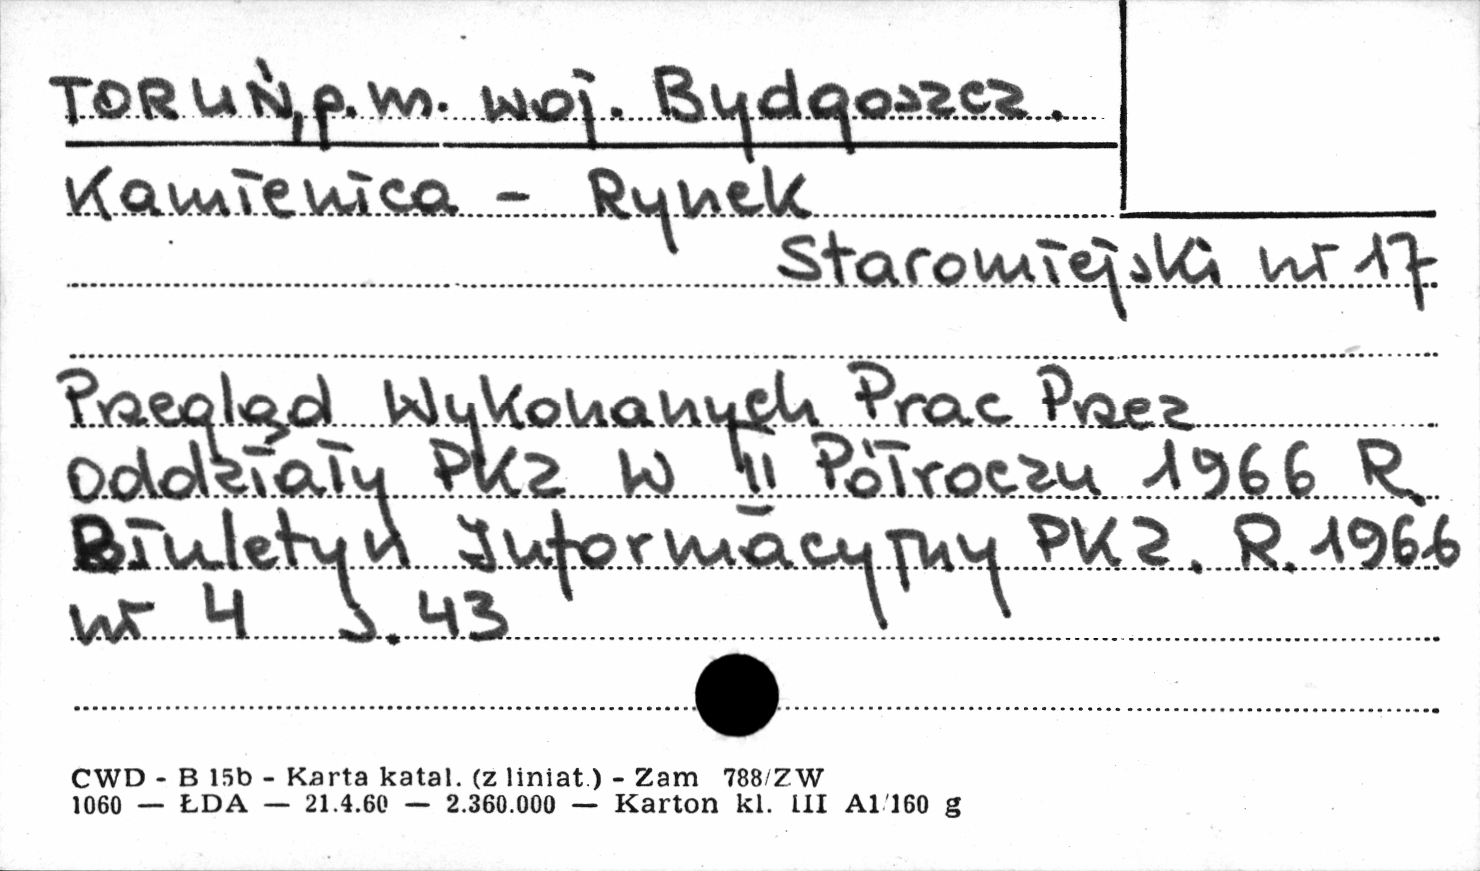 TORUŃ, p.m. woj. Bydgoszcz.
Kamienica - Rynek
Staromiejski nr 17
Przegląd Wykonanych Prac Przez
Oddziały PKZ w II Półroczu 1966 R.
Biuletyn Informacyjny PKZ. R. 1966
nr 4 s. 43
CWD - B 15b - Karta katal. (z liniat.) - Zam 788/ZW
1060 — ŁDA — 21.4.60 — 2.360.000 — Karton kl. III A1/160 g